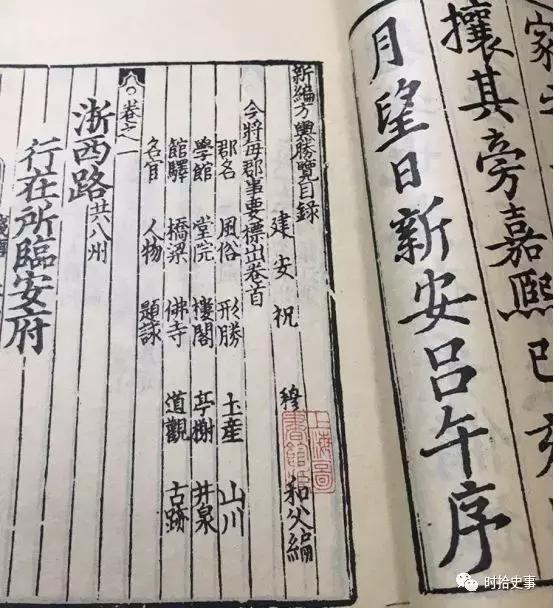 攘其旁嘉熙已亥
月望日新安呂午序
新編方輿勝覽目錄
建安祝穆和父編
今將每郡事要標出卷首
郡名 風俗 形勝 土産 山川
學館 堂院 樓閣 亭榭 井泉
館驛 橋梁 佛寺 道觀 古跡
名宦 人物 題詠
卷之一
浙西路 共八州
行在所臨安府
上海圖書館藏
时拾史事